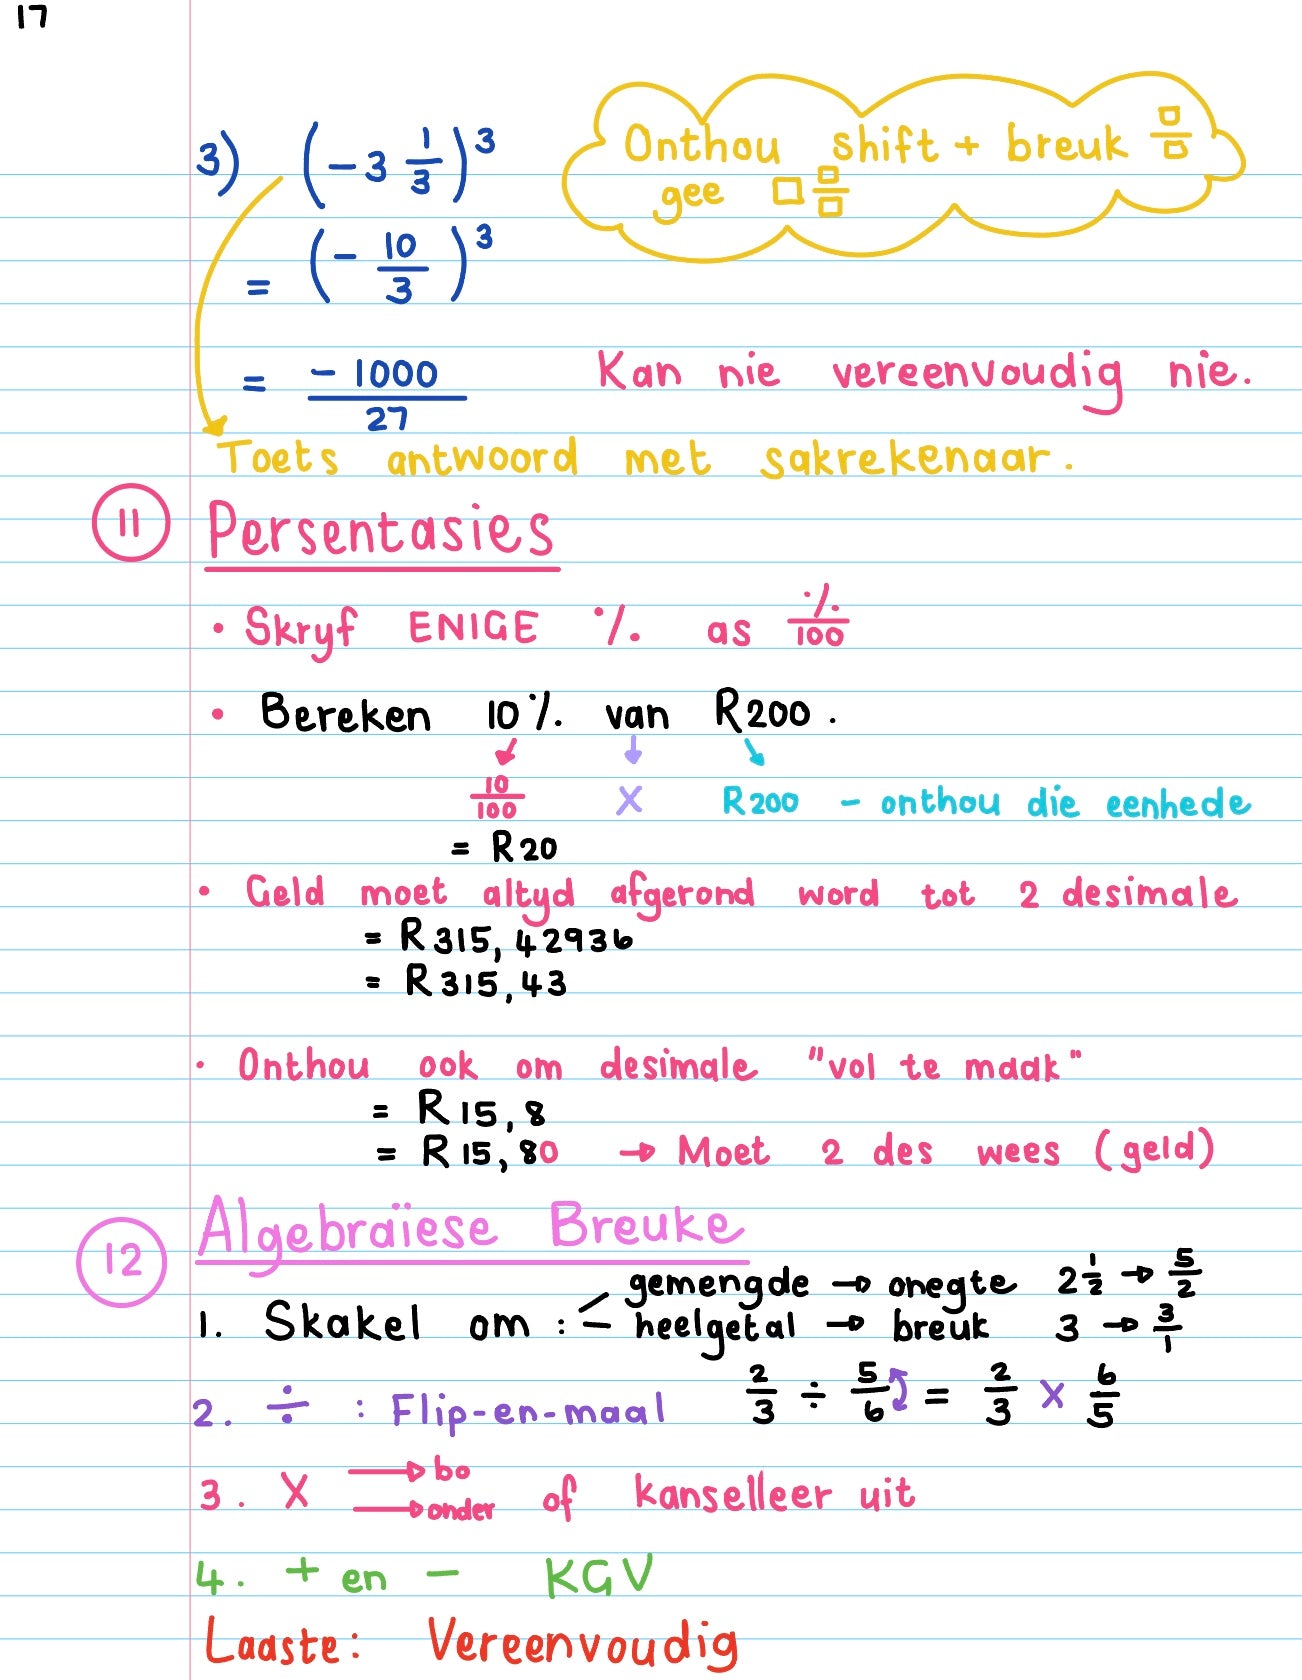 17
3) (-3 1/3)³
Onthou shift + breuk □/□
gee □ □/□
= (- 10/3)³
= -1000/27 Kan nie vereenvoudig nie.
Toets antwoord met sakrekenaar.
11 Persentasies
• Skryf ENIGE % as %/100
• Bereken 10% van R200.
10/100 X R200 - onthou die eenhede
= R20
• Geld moet altyd afgerond word tot 2 desimale
= R315,42936
= R315,43
• Onthou ook om desimale "vol te maak"
= R15,8
= R15,80 → Moet 2 des wees (geld)
12 Algebraïese Breuke
gemengde → onegte 2 1/2 → 5/2
1. Skakel om : heelgetal → breuk 3 → 3/1
2. ÷ : Flip-en-maal 2/3 ÷ 5/6 = 2/3 X 6/5
3. X → bo → onder of kanselleer uit
4. + en - KGV
Laaste: Vereenvoudig